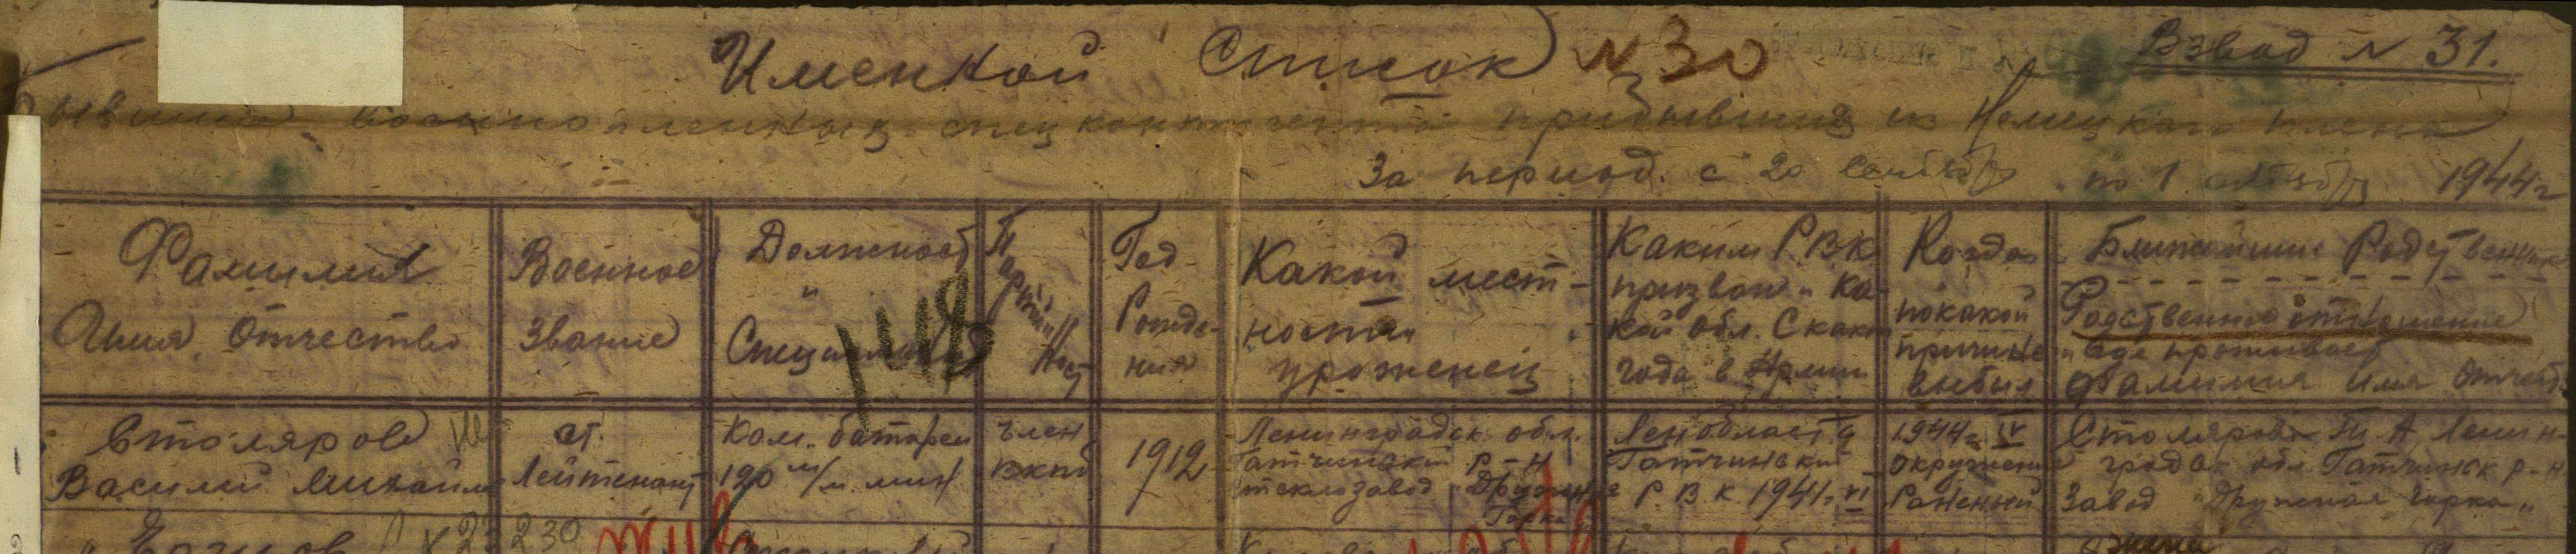 Именной Список N 30
Взвод N 31.
бывших военнопленных спецконтингента прибывших из Немецкого плена
За период с 20 сентября по 1 октября 1944 г
Фамилия
Имя Отчество
Военное
Звание
Должност
и
Специально
1418
Партий
Ност
Год
Рожде-
ния
Какой мест-
ности
уроженец
Каким Р.В.К
призван и ка-
кой обл. С какого
года в Армии
Когда
по какой
причине
выбыл
Ближайшие Родственник
Родственное отношение
и где проживает
Фамилия Имя Отчест
Столяров
Василий Михайл
ст.
Лейтенант
Ком. батареи
120 м/м. мин
член
вкпб
1912
Ленинградск. обл.
Гатчинский Р-Н
стеклозавод "Дружная
Горка"
Лен область
Гатчинский
Р.В.К. 1941 г. VI
1944 г. IV
окружение
Раненный
Столярова Т. А Ленин-
градск обл. Гатчинск р-н
Завод "Дружная Горка"
X23230
жив
жена